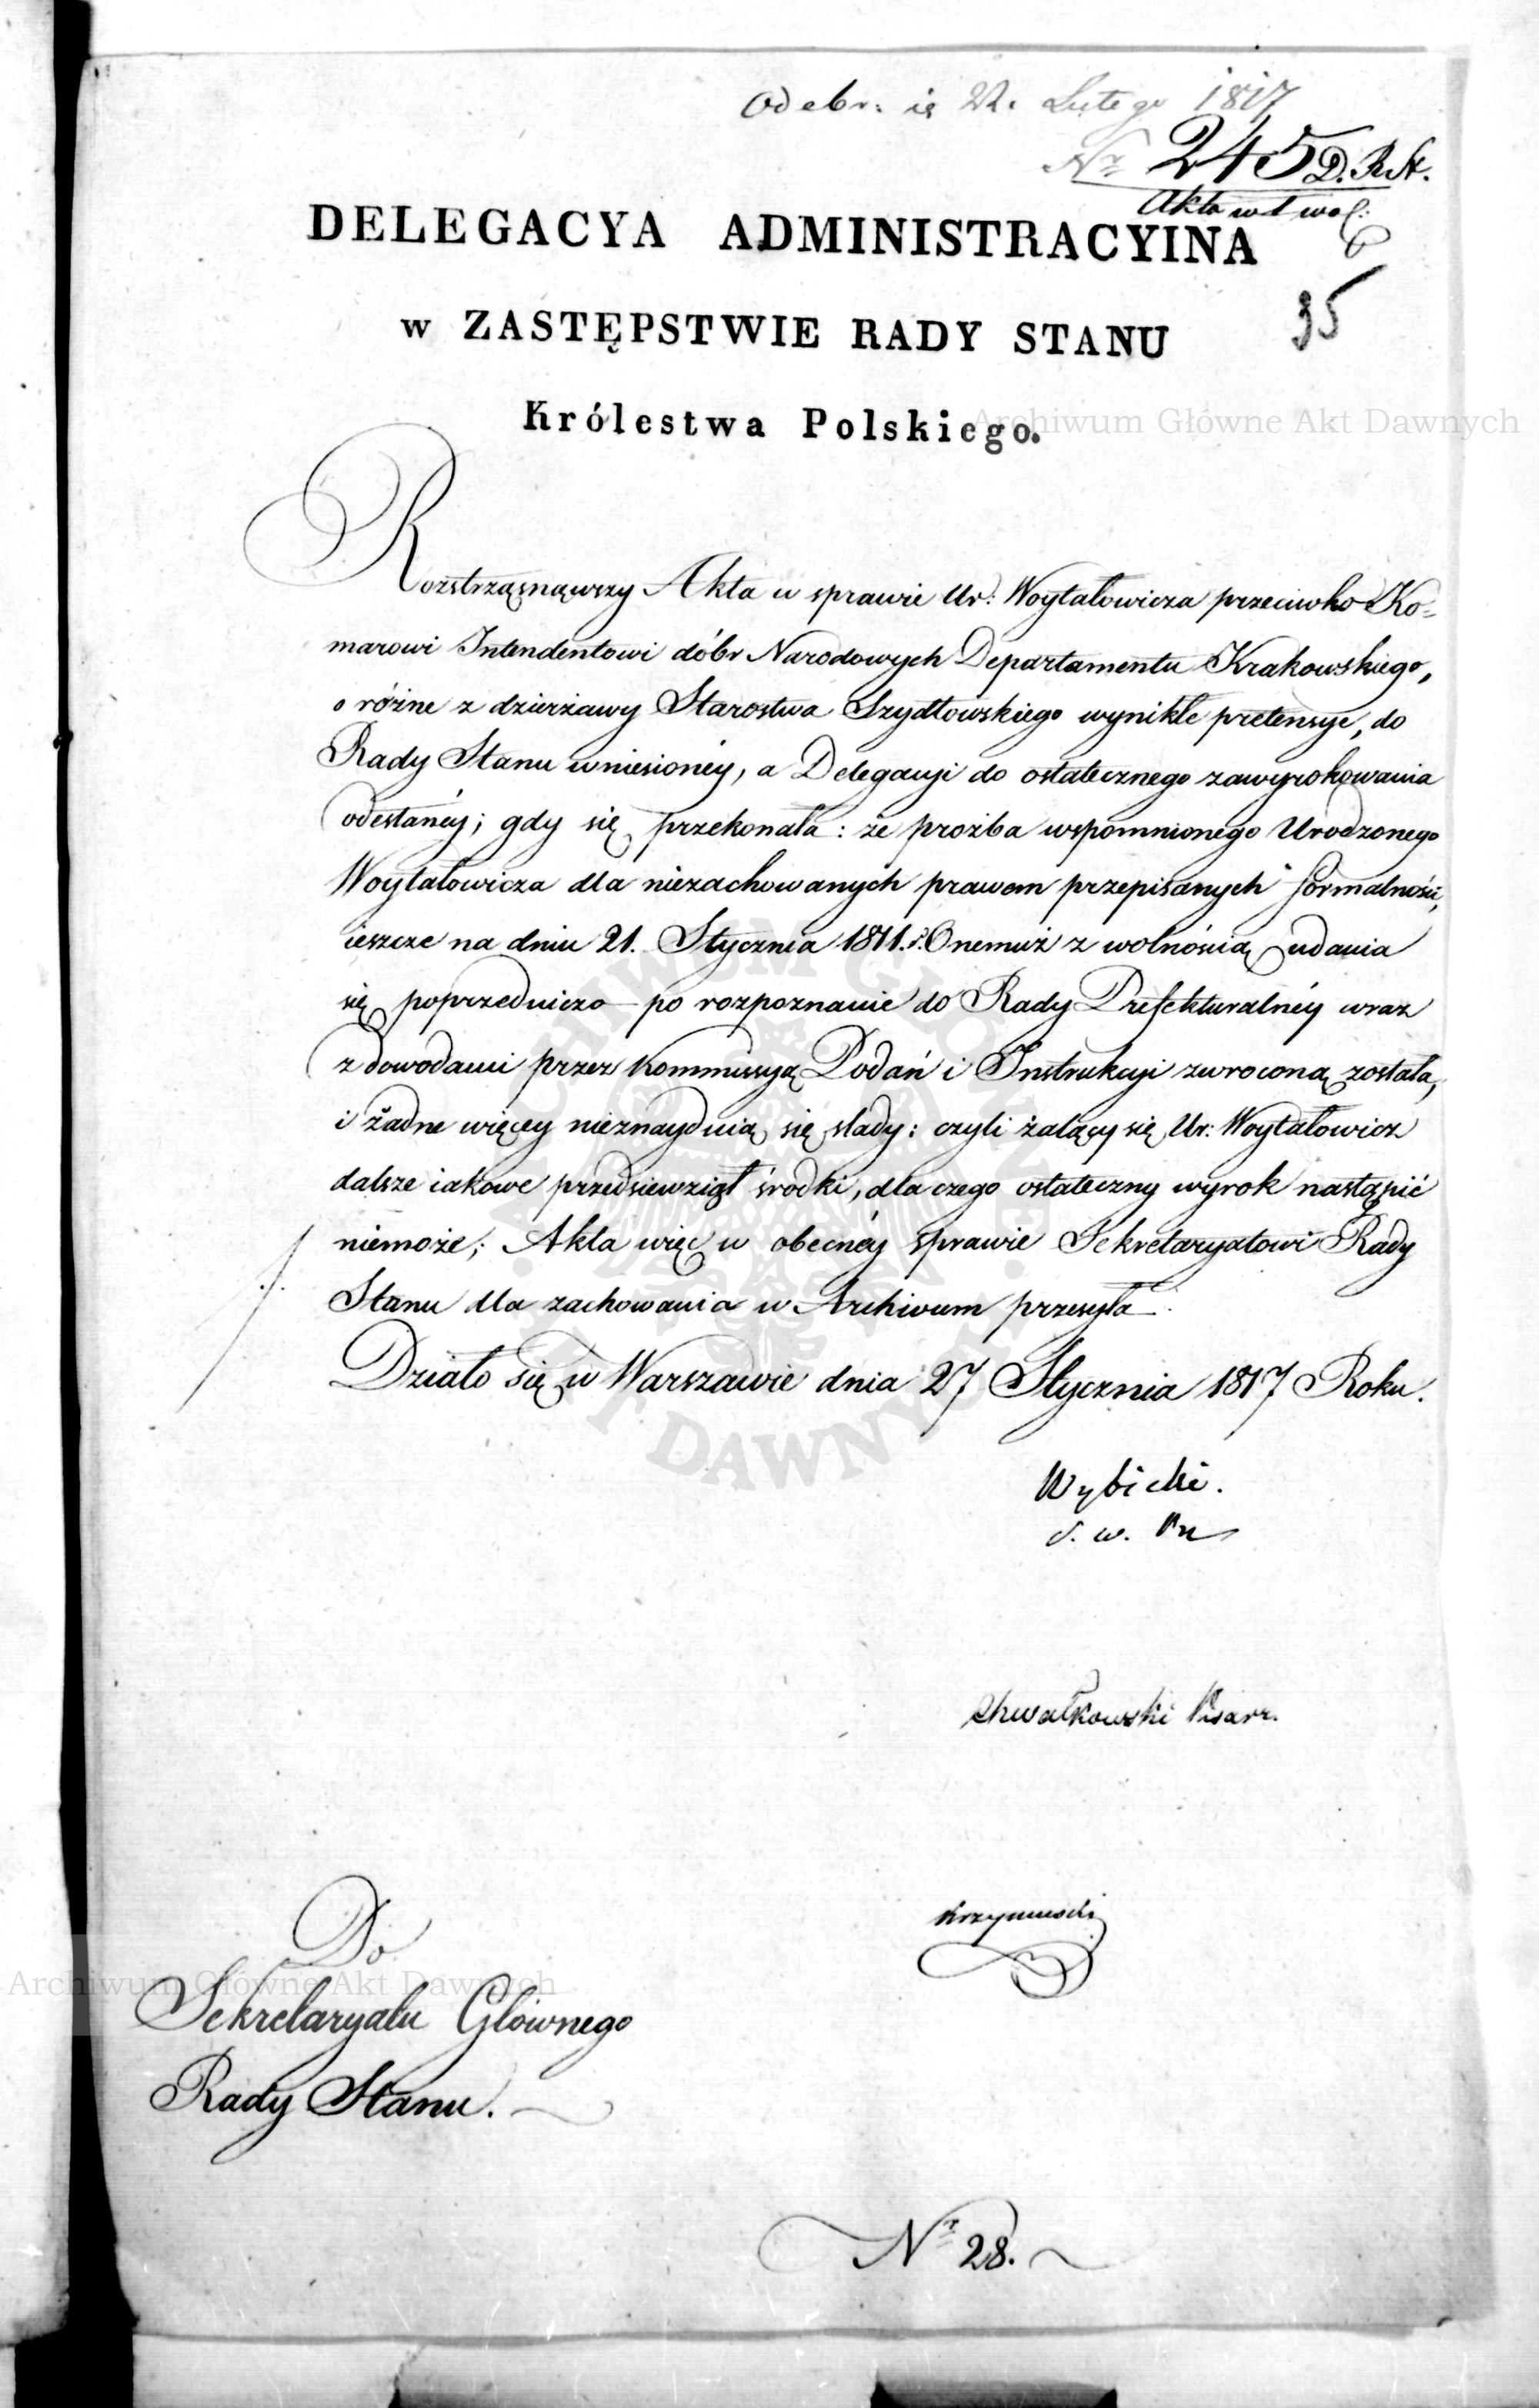 Odebr: ię 22. Lutego 1817
Nr 245 D. R. St.
Akta wt wol:
95
DELEGACYA ADMINISTRACYINA
w ZASTĘPSTWIE RADY STANU
Królestwa Polskiego.
Archiwum Główne Akt Dawnych
Rozstrząsnąwszy Akta w sprawie Ur: Woytałowicza przeciwko Ko=
marowi Intendentowi dóbr Narodowych Departamentu Krakowskiego,
o różne z dzierżawy Starostwa Szydłowskiego wynikłe pretensye, do
Rady Stanu wniesionéy, a Delegacyi do ostatecznego zawyrokowania
odesłanéy; gdy się przekonała: że proźba wspomnionego Urodzonego
Woytałowicza dla niezachowanych prawem przepisanych formalności,
ieszcze na dniu 21. Stycznia 1811. r. Onemuż z wolnością udania
się poprzedniczo po rozpoznanie do Rady Prefekturalnéy wraz
z dowodami przez Kommissyą Podań i Instrukcyi zwroconą została,
i żadne więcey nieznayduią się slady: czyli żalący się Ur: Woytałowicz
dalsze iakowe przedsiewziął środki, dla czego ostateczny wyrok nastąpić
niemoże; Akta więc w obecnéy sprawie Sekretaryatowi Rady
Stanu dla zachowania w Archivum przesyła.
Działo się w Warszawie dnia 27 Stycznia 1817 Roku.
Wybicki.
S. w. Pr
Chwałkowski Pisarz.
Krzymuski
Do
Archiwum Główne Akt Dawnych
Sekretaryatu Głównego
Rady Stanu.
Nr 28.
ARCHIWUM GŁÓWNE AKT DAWNYCH